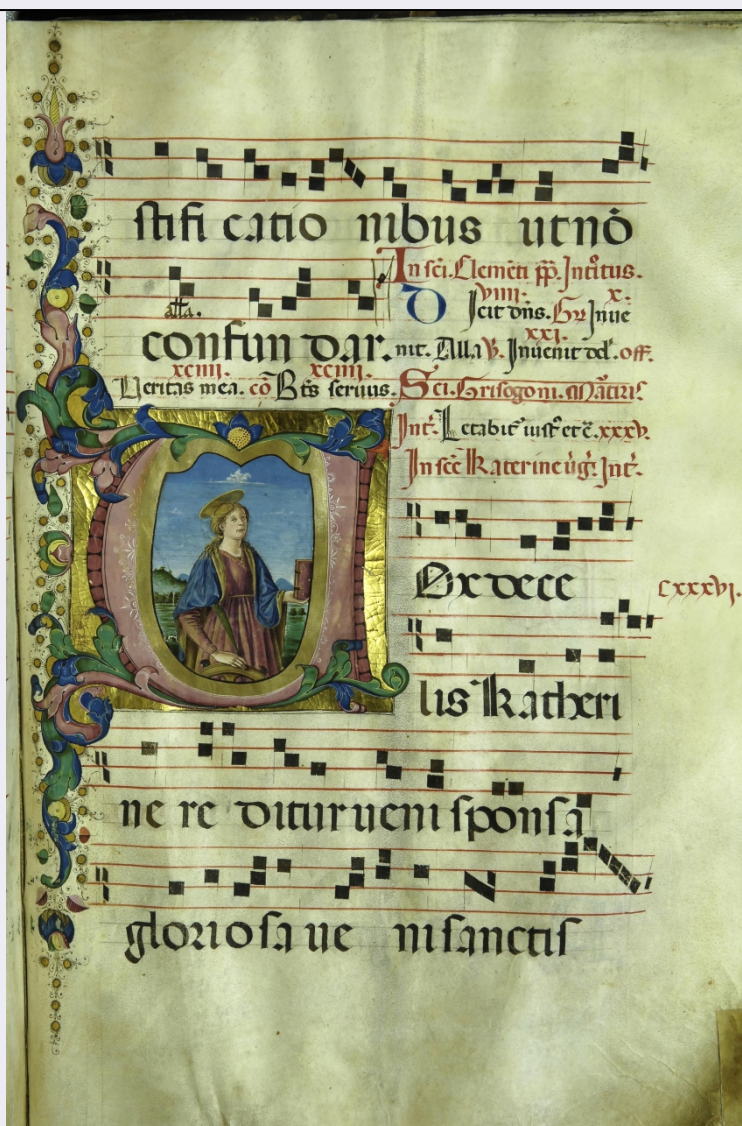 stifi catio nibus utnō
In sc̄i. Clemēti pp̄. Intitus.
viiii. x.
alla. D Icit dn̄s. Gr̄ Inue
xxi.
confun dar. nit. Alla. ℣. Inuenit dd̄. off.
xciiii. xciiii.
Ueritas mea. cō Bt̄s seruus. Sci. Grisogoni. Mātiris
Int̄. Letabit᷒ iust᷒ et c̄. xxxv.
In scē Katerine ūg̃. Int̄.
Ox dece cxxxvi.
lis Katheri
ne re ditur ueni sponsa
gloriosa ue ni sanctis